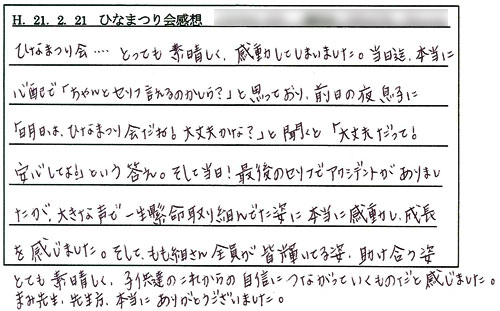 H. 21. 2. 21 ひなまつり会感想
ひなまつり会‥‥ とっても 素晴しく、感動してしまいました。当日迄、本当に
心配で「ちゃんとセリフ言えるのかしら？」と思っており、前日の夜 息子に
「明日は、ひなまつり会だね！大丈夫かな？」と聞くと「大丈夫だって！
安心してよ！」という答え。そして当日！最後のセリフでアクシデントがありまし
たが、大きな声で一生懸命取り組んでた姿に本当に感動し、成長
を感じました。そして、もも組さん全員が皆輝いてる姿、助け合う姿
とても素晴しく、子供達のこれからの自信につながっていくものだと感じました。
まみ先生、先生方、本当に ありがとうございました。